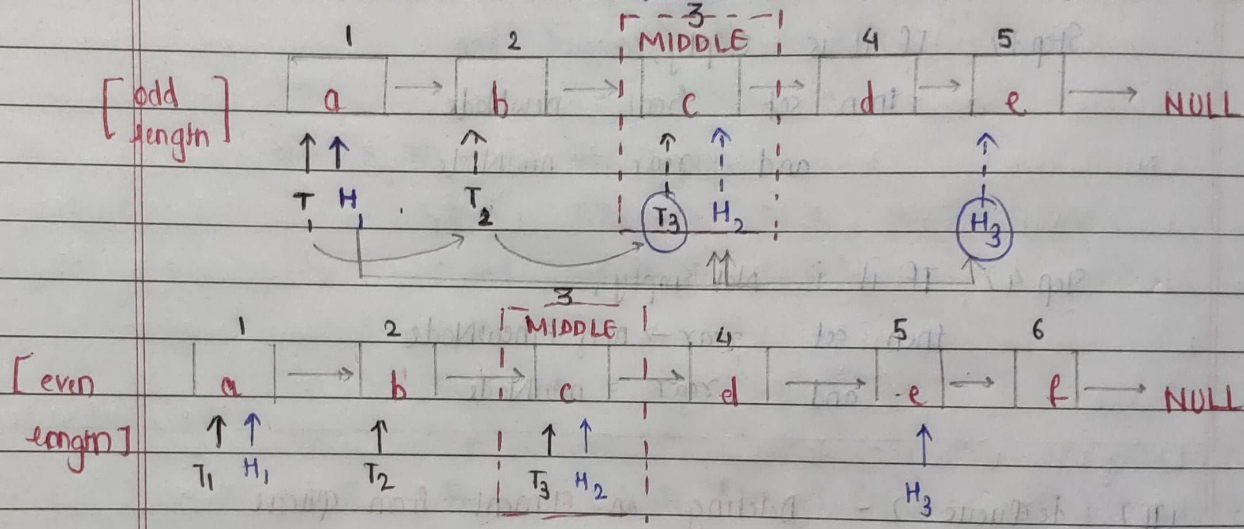 3
1 2 MIDDLE 4 5
[odd length] a → b → c → d → e → NULL
T H T2 T3 H2 H3
3
1 2 MIDDLE 4 5 6
[even length] a → b → c → d → e → f → NULL
T1 H1 T2 T3 H2 H3